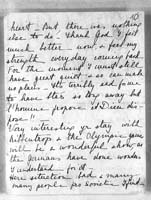 10
heart. And there was nothing
else to do. Thank God I felt
much better now - feel my
strength every day coming back.
For the moment I want still
have great quiet & so can make
no plans. It's really sad for me
to have this so long up but
"l'homme propose et Dieu dis-
pose"! —
Very interesting yr stay with
and the Olympic games
will be a wonderful show, as
the Germans have done wonders
I understand for it.
Here situation sad & many
many people pro Soviets.